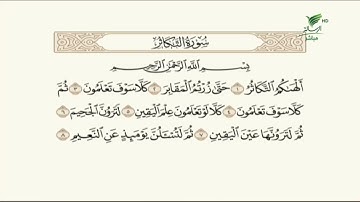 سُورَةُ التَّكَاثُرِ
بِسْمِ اللَّهِ الرَّحْمَٰنِ الرَّحِيمِ
أَلْهَاكُمُ التَّكَاثُرُ ١ حَتَّىٰ زُرْتُمُ الْمَقَابِرَ ٢ كَلَّا سَوْفَ تَعْلَمُونَ ٣ ثُمَّ
كَلَّا سَوْفَ تَعْلَمُونَ ٤ كَلَّا لَوْ تَعْلَمُونَ عِلْمَ الْيَقِينِ ٥ لَتَرَوُنَّ الْجَحِيمَ ٦
ثُمَّ لَتَرَوُنَّهَا عَيْنَ الْيَقِينِ ٧ ثُمَّ لَتُسْأَلُنَّ يَوْمَئِذٍ عَنِ النَّعِيمِ ٨
HD
مباشر